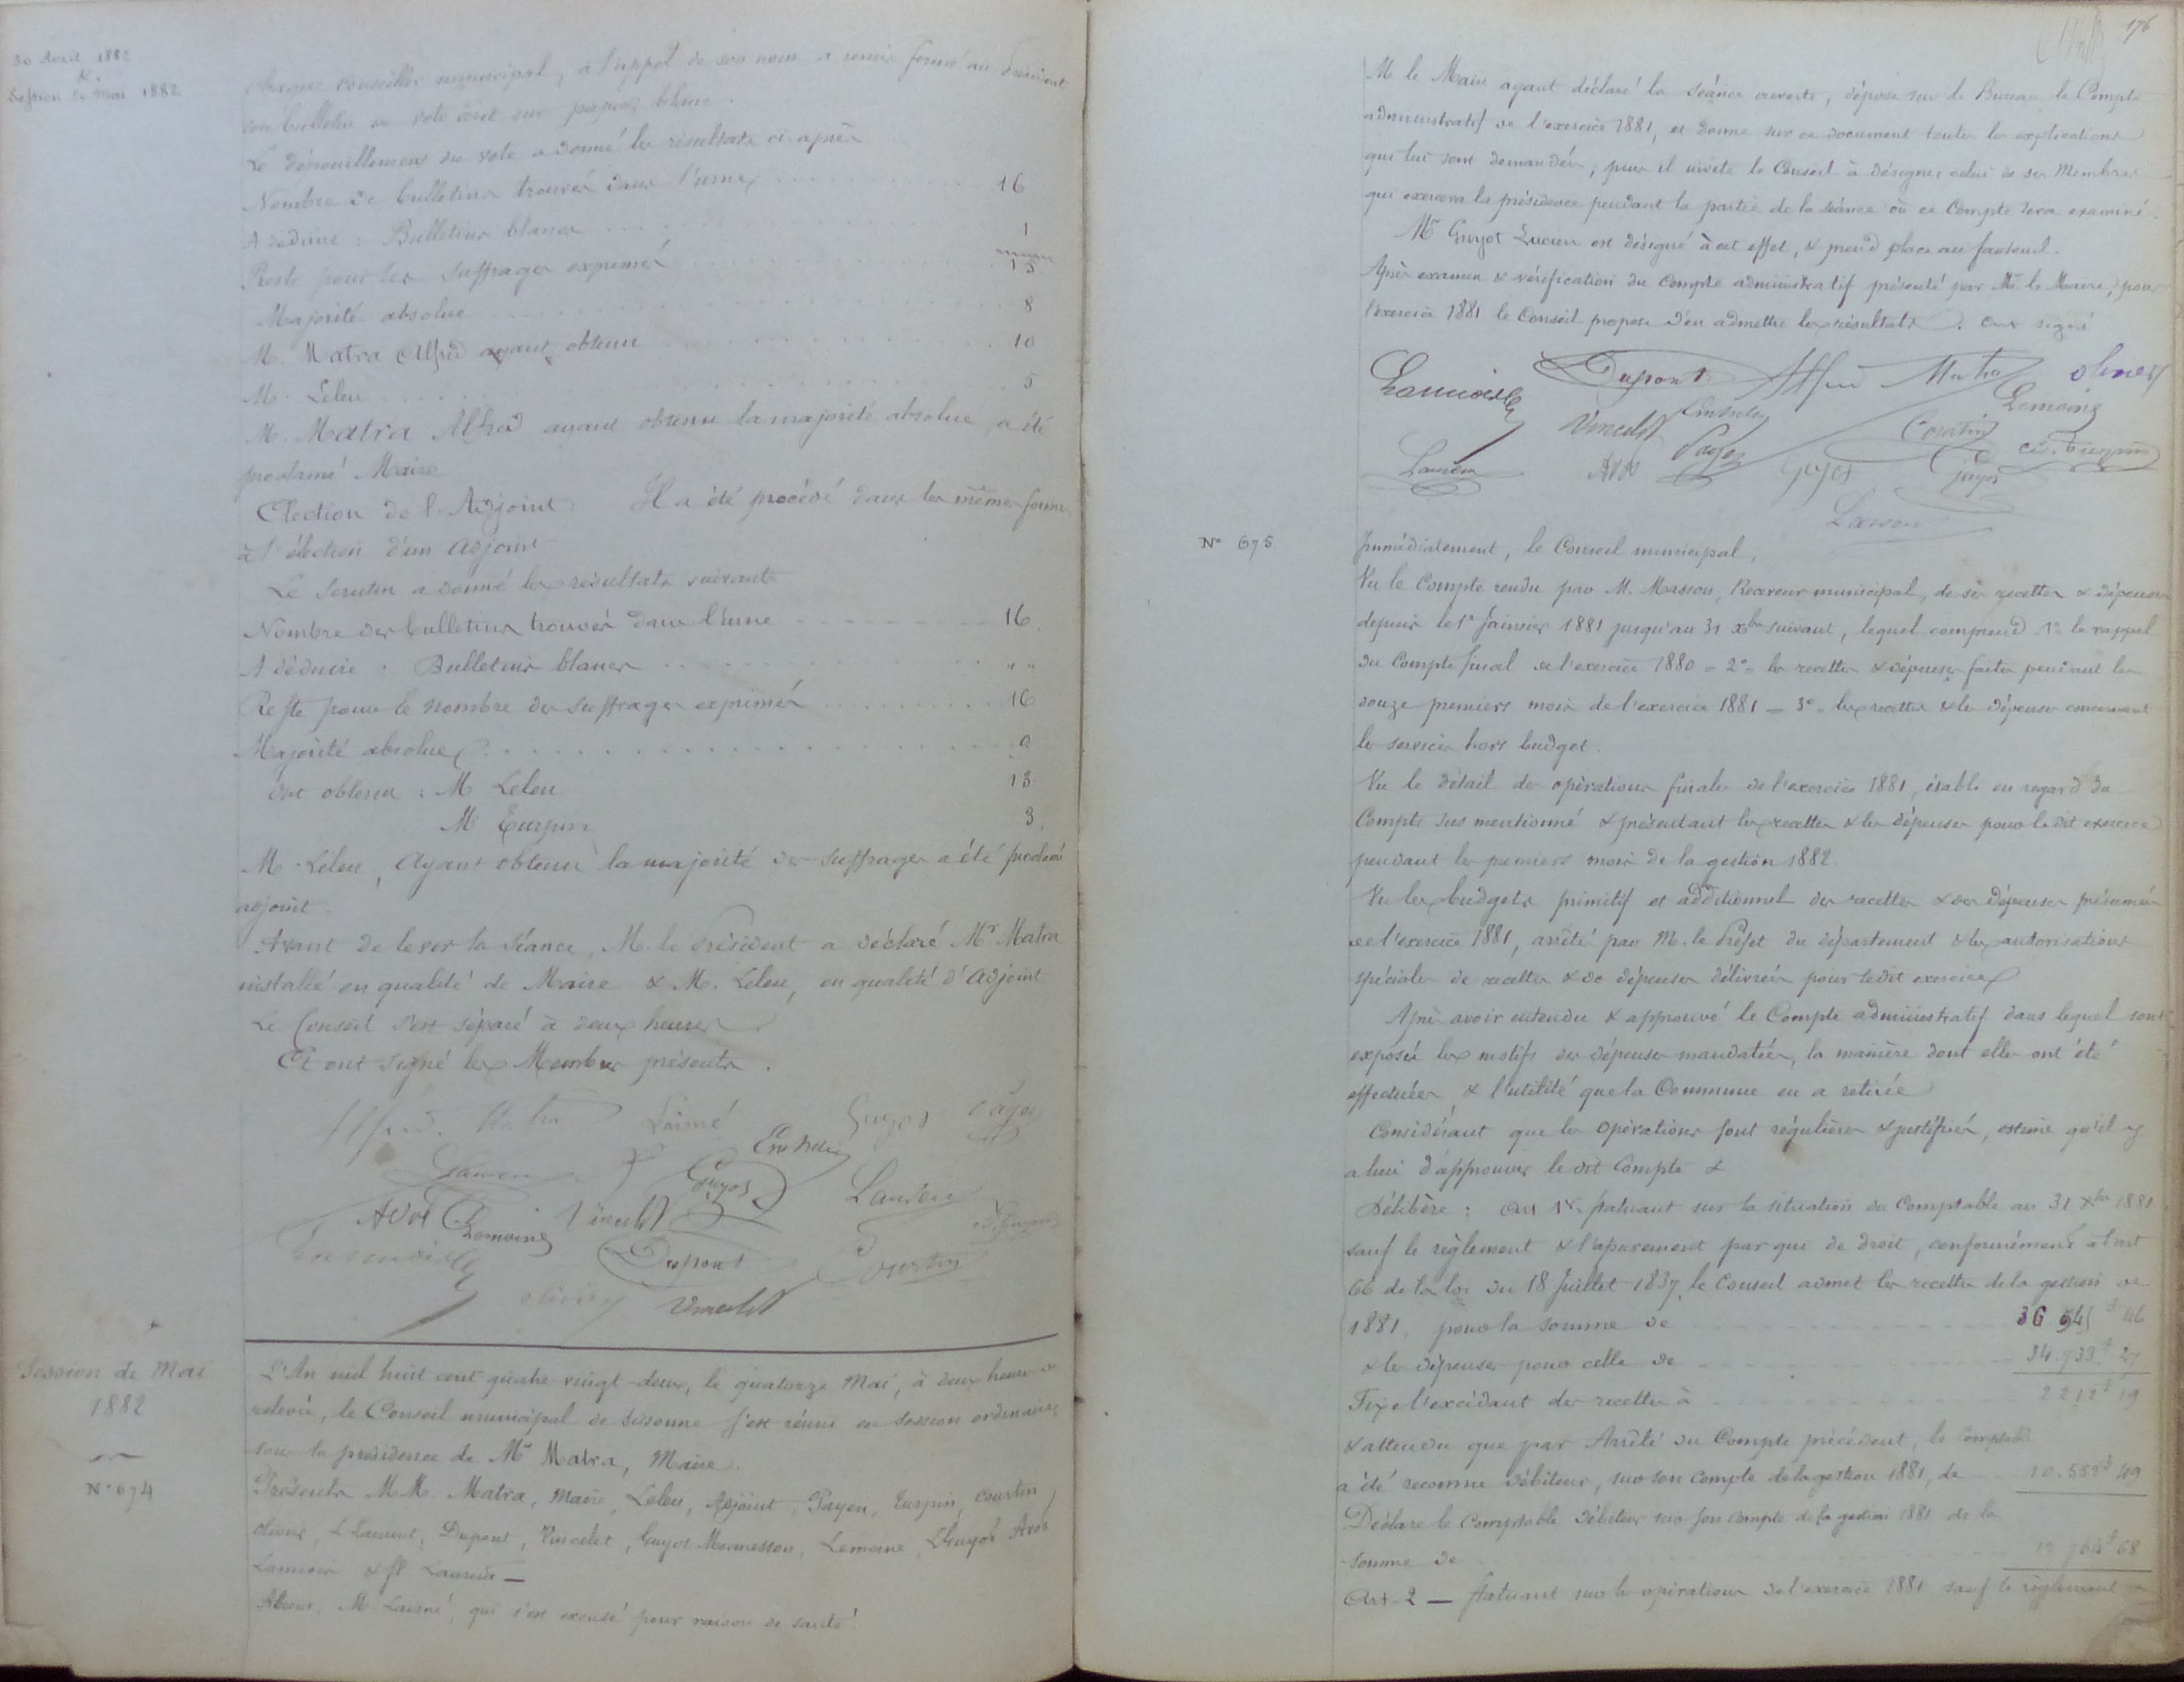 30 Avril 1882
&
Session de Mai 1882
Chaque conseiller municipal, à l'appel de son nom a remis fermé au Président
son bulletin de vote écrit sur papier blanc.
Le dépouillement du vote a donné les résultats ci-après
Nombre de bulletins trouvés dans l'urne 16
A déduire : Bulletins blancs 1
Reste pour les suffrages exprimés 15
Majorité absolue 8
M. Matra Alfred ayant obtenu 10
M. Leleu 5
M. Matra Alfred ayant obtenu la majorité absolue, a été
proclamé Maire
Election de l'Adjoint. Il a été procédé dans les mêmes formes
à l'élection d'un Adjoint
Le scrutin a donné les résultats suivants
Nombre des bulletins trouvés dans l'urne 16
A déduire : Bulletins blancs " "
Reste pour le nombre des suffrages exprimés 16
Majorité absolue 9
Ont obtenu : M Leleu 13
M Turpin 3
M. Leleu, Ayant obtenu la majorité des suffrages a été proclamé
adjoint.
Avant de lever la séance, M. le Président a déclaré Mr Matra
installé en qualité de Maire & M. Leleu, en qualité d'Adjoint
Le Conseil s'est séparé à deux heures
Et ont signé les Membres présents.
Alfred Matra Laisné Guyot Payen
Laurent Guyot Laurent
Avot Lemoine Vincelet
Dupont Courtin
Olivier Vincelet
Session de Mai
1882
N° 674
L'An mil huit cent quatre vingt-deux, le quatorze Mai, à deux heures de
relevée, le Conseil municipal de Sissonne s'est réuni en session ordinaire,
sous la présidence de Mr Matra, Maire.
Présents MM. Matra, Maire, Leleu, Adjoint, Payen, Turpin, Courtin,
Olivier, L Laurent, Dupont, Vincelet, Guyot Mennesson, Lemoine, L Guyot Avot
Lannois & fl Laurent —
Absent, M. Laisné, qui s'est excusé pour raison de santé.
176
M le Maire ayant déclaré la séance ouverte, dépose sur le Bureau le Compte
administratif de l'exercice 1881, et donne sur ce document toutes les explications
qui lui sont demandées, puis il invite le Conseil à désigner celui de ses Membres
qui exercera la présidence pendant la partie de la séance où ce Compte sera examiné.
Mr Guyot Lucien est désigné à cet effet, & prend place au fauteuil.
Après examen & vérification du Compte administratif présenté par Mr le Maire, pour
l'exercice 1881 le Conseil propose d'en admettre les résultats. Ont signé
Dupont Alfred Matra Olivier
Vincelet Lemoine
Payen Courtin Ed. Turpin
Laurent Avot Guyot Guyot
Laurent
N° 675
Immédiatement, le Conseil municipal,
Vu le Compte rendu par M. Masson, Receveur municipal, de ses recettes & dépenses
depuis le 1er Janvier 1881 jusqu'au 31 Xbre suivant, lequel comprend 1° le rappel
du Compte final de l'exercice 1880 = 2° = les recettes & dépenses faites pendant les
douze premiers mois de l'exercice 1881 = 3° = les recettes & les dépenses concernant
les services hors budget.
Vu le détail des opérations finales de l'exercice 1881, établi en regard du
Compte sus mentionné & présentant les recettes & les dépenses pour le dit exercice
pendant les premiers mois de la gestion 1882
Vu les budgets primitif et additionnel des recettes & des dépenses présumées
de l'exercice 1881, arrêté par M. le Préfet du département & les autorisations
spéciales de recettes & de dépenses délivrées pour ledit exercice
Après avoir entendu & approuvé le Compte administratif dans lequel sont
exposés les motifs des dépenses mandatées, la manière dont elles ont été
effectuées, & l'utilité que la Commune en a retirée
Considérant que les Opérations sont régulières & justifiées, estime qu'il y
a lieu d'approuver le dit Compte &
Délibère : Art 1er Statuant sur la situation du Comptable au 31 Xbre 1881
sauf le règlement & l'apurement par qui de droit, conformément à l'art
66 de la loi du 18 Juillet 1837, le Conseil admet les recettes de la gestion de
1881, pour la somme de 36 945 f 46
& les dépenses pour celle de 34.733 f 27
Fixe l'excédant des recettes à 2212 f 19
& attendu que par Arrêté du Compte précédent, le Comptable
a été reconnu débiteur, sur son Compte de la gestion 1881, de 10.552 f 49
Déclare le Comptable débiteur sur son Compte de la gestion 1881 de la
Somme de 12 764 f 68
Art. 2 — Statuant sur les opérations de l'exercice 1881 sauf le règlement